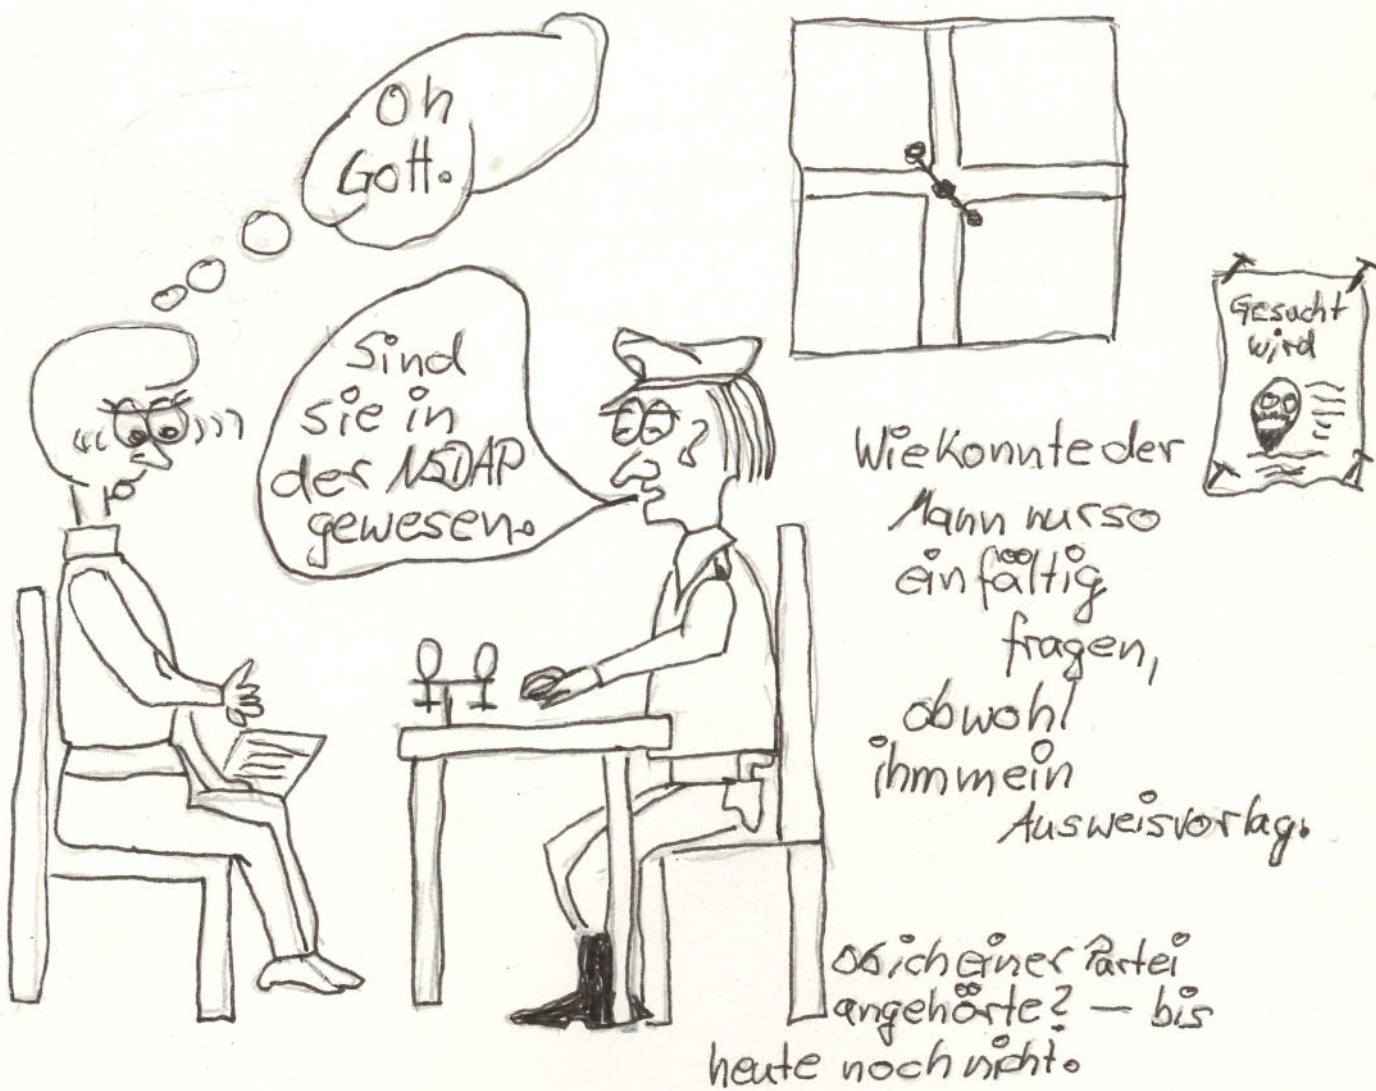 Oh
Gott.
Sind
sie in
der NSDAP
gewesen.
Gesucht
wird
Wie konnte der
Mann nur so
einfältig
fragen,
obwohl
ihm mein
Ausweis vorlag.
Ob ich einer Partei
angehörte? – bis
heute noch nicht.